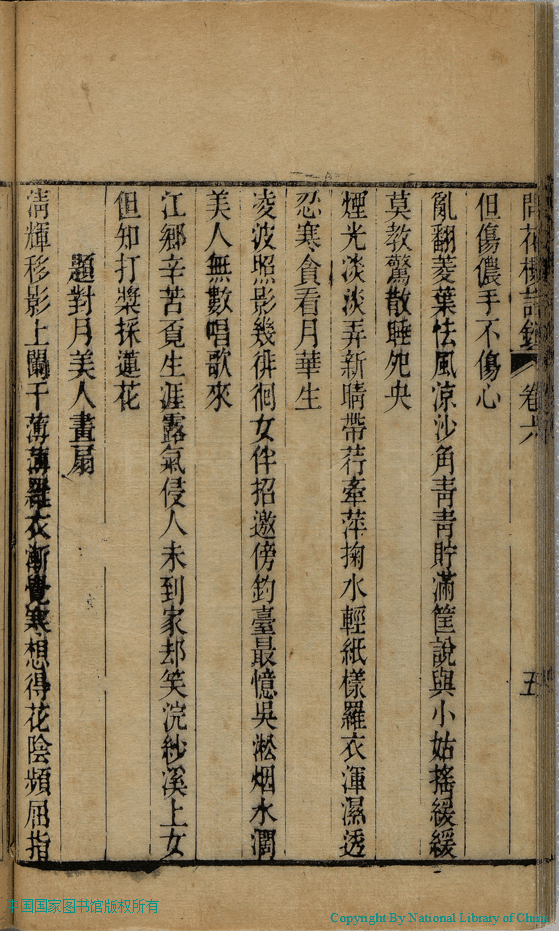 問花樓詩鈔 卷六 五
但傷儂手不傷心
亂翻菱葉怯風涼沙角靑靑貯滿筐說與小姑搖緩緩
莫教驚散睡夗央
煙光淡淡弄新晴帶荇牽萍掬水輕紙樣羅衣渾濕透
忍寒貪看月華生
凌波照影幾徘徊女伴招邀傍釣臺最憶吳淞烟水濶
美人無數唱歌來
江鄉辛苦覔生涯露氣侵人未到家却笑浣紗溪上女
但知打槳採蓮花
題對月美人畫扇
淸輝移影上闌干薄薄羅衣漸覺寒想得花陰頻屈指
中国国家图书馆版权所有
Copyright By National Library of China